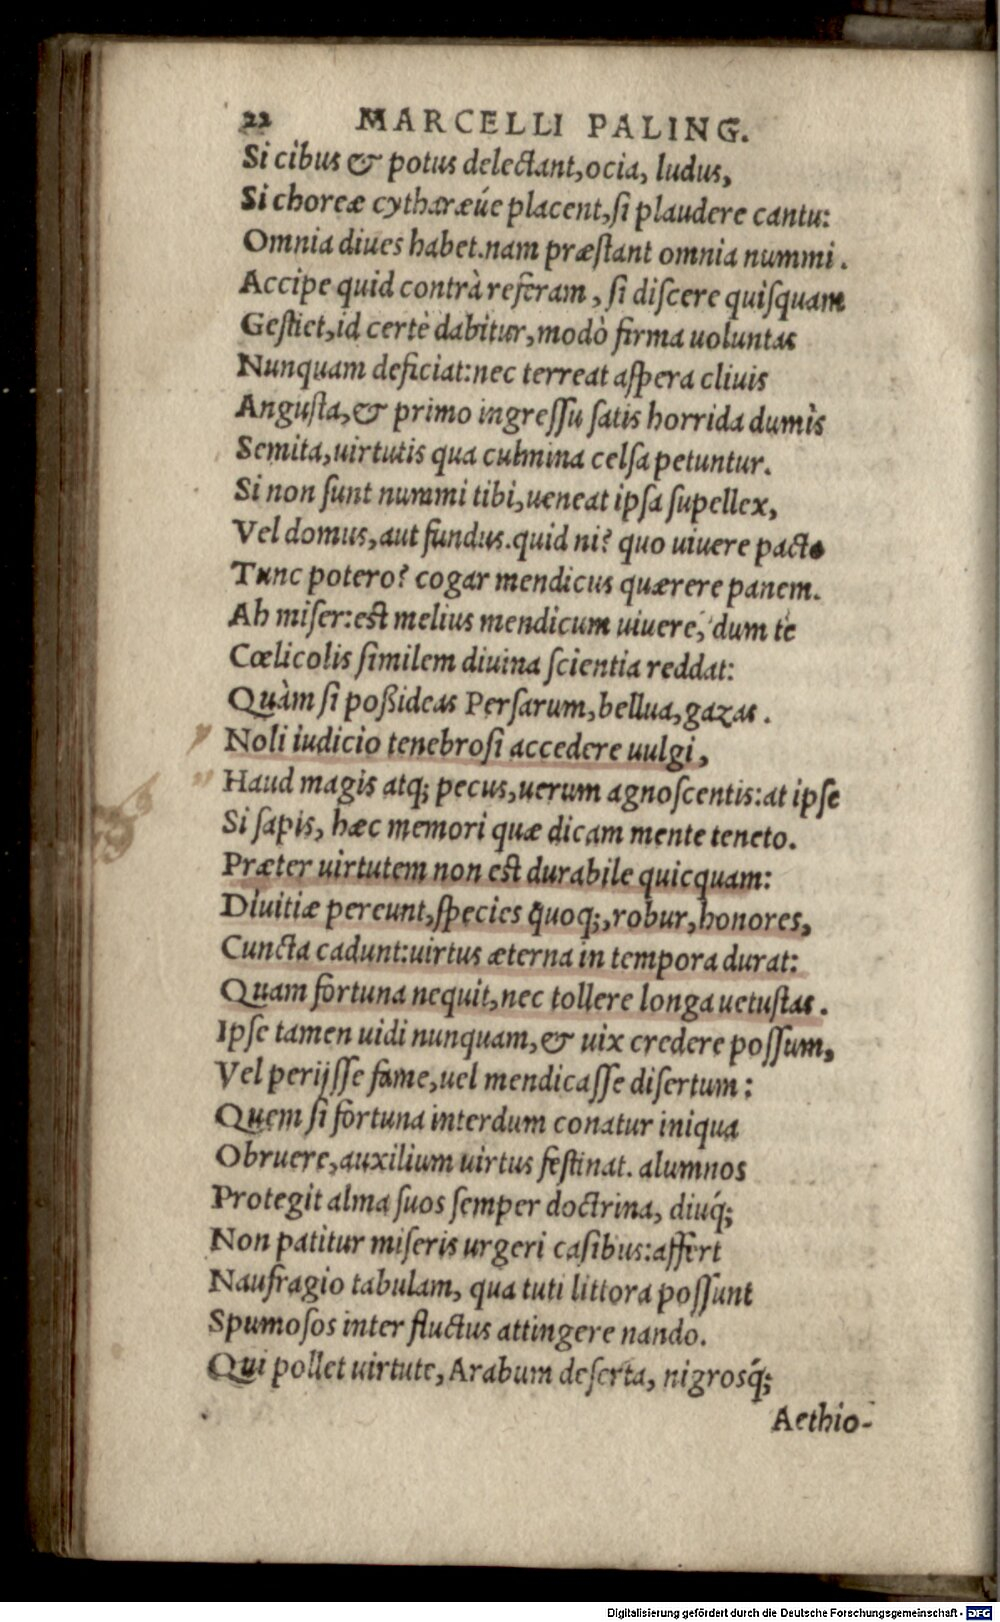 22 MARCELLI PALING.
Si cibus & potus delectant, ocia, ludus,
Si choreæ cytharæúe placent, si plaudere cantu:
Omnia diues habet. nam præstant omnia nummi.
Accipe quid contrà referam, si discere quisquam
Gestiet, id certè dabitur, modò firma uoluntas
Nunquam deficiat: nec terreat aspera cliuis
Angusta, & primo ingressu satis horrida dumis
Semita, uirtutis qua culmina celsa petuntur.
Si non sunt nummi tibi, ueneat ipsa supellex,
Vel domus, aut fundus. quid ni? quo uiuere pacto
Tunc potero? cogar mendicus quærere panem.
Ah miser: est melius mendicum uiuere, dum te
Cœlicolis similem diuina scientia reddat:
Quàm si poßideas Persarum, bellua, gazas.
Noli iudicio tenebrosi accedere uulgi,
Haud magis atq; pecus, uerum agnoscentis: at ipse
Si sapis, hæc memori quæ dicam mente teneto.
Præter uirtutem non est durabile quicquam:
Diuitiæ pereunt, species quoq;, robur, honores,
Cuncta cadunt: uirtus æterna in tempora durat:
Quam fortuna nequit, nec tollere longa uetustas.
Ipse tamen uidi nunquam, & uix credere possum,
Vel perijsse fame, uel mendicasse disertum:
Quem si fortuna interdum conatur iniqua
Obruere, auxilium uirtus festinat. alumnos
Protegit alma suos semper doctrina, diuq́;
Non patitur miseris urgeri casibus: affert
Naufragio tabulam, qua tuti littora possunt
Spumosos inter fluctus attingere nando.
Qui pollet uirtute, Arabum deserta, nigrosq́;
Aethio-
Digitalisierung gefördert durch die Deutsche Forschungsgemeinschaft - DFG